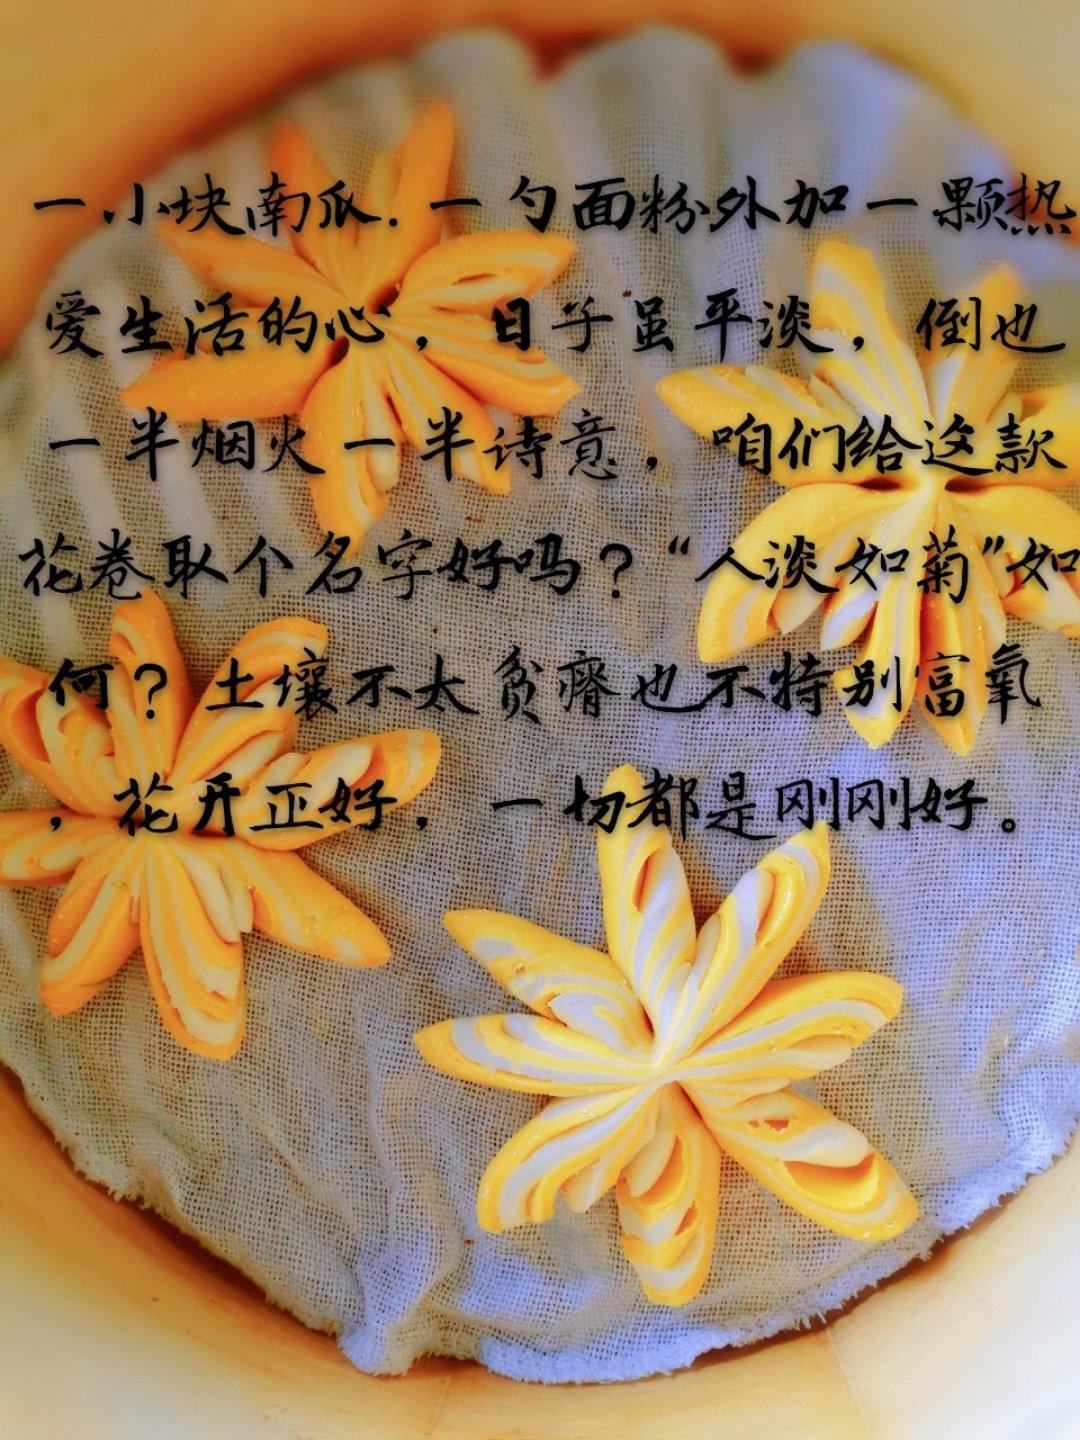 一小块南瓜.一勺面粉外加一颗热
爱生活的心，日子虽平淡，倒也
一半烟火一半诗意，咱们给这款
花卷取个名字好吗？“人淡如菊”如
何？土壤不太贫瘠也不特别富氧
，花开正好，一切都是刚刚好。